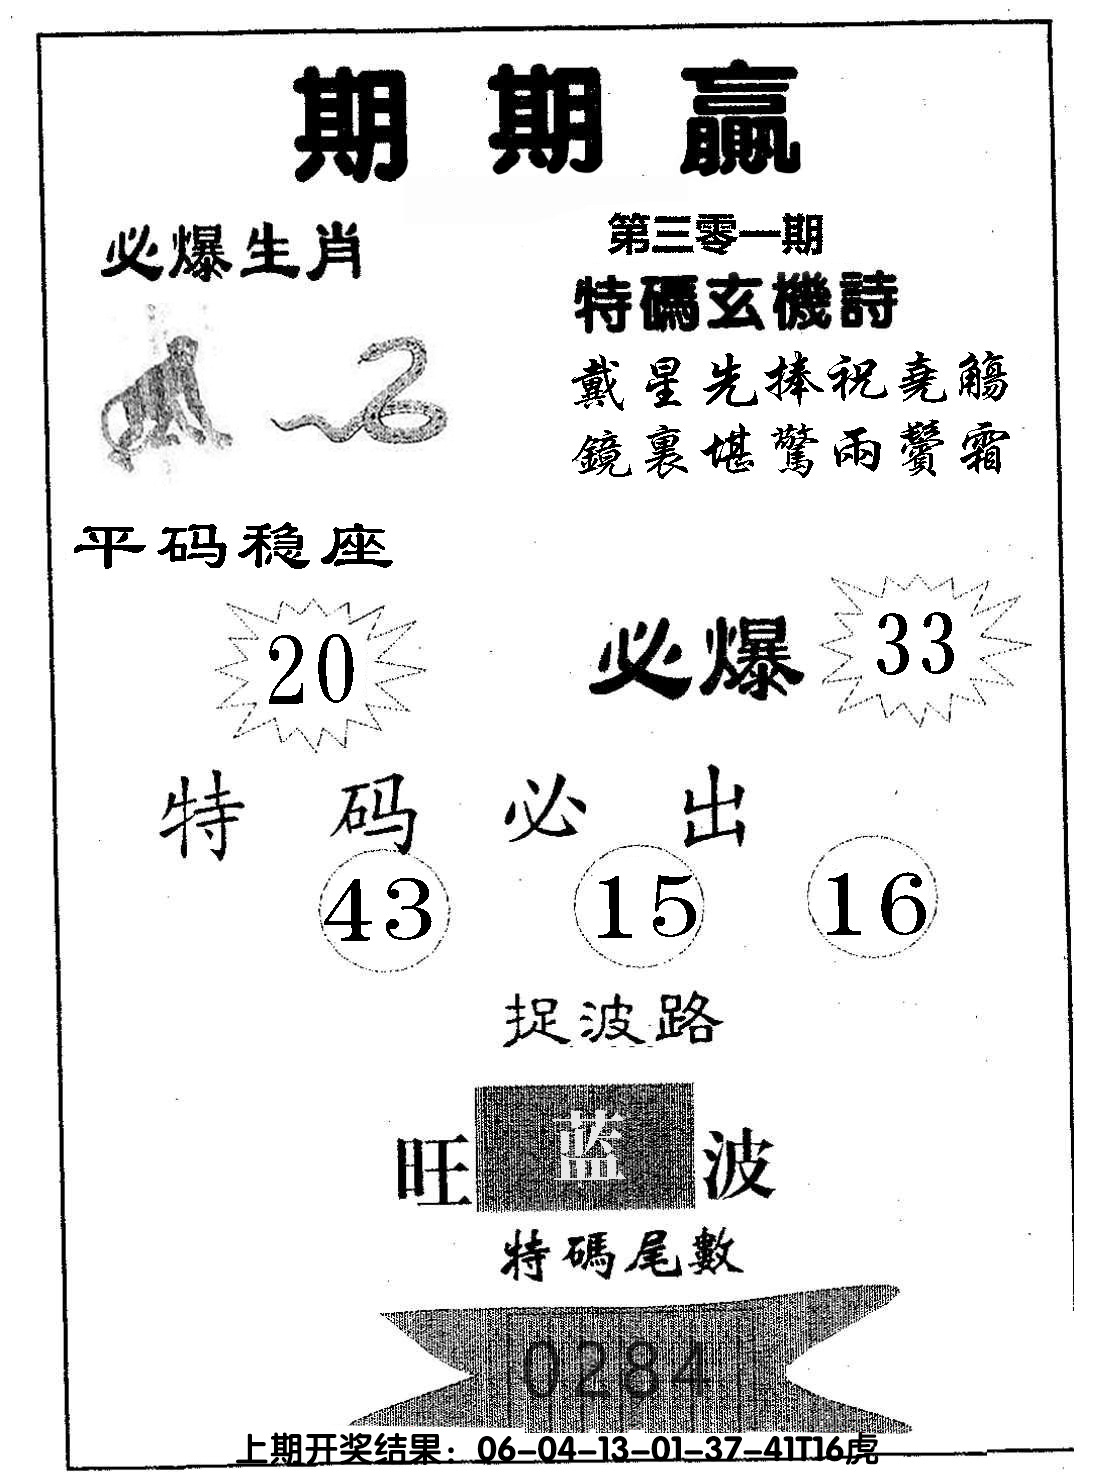 期期贏
必爆生肖
第三零一期
特碼玄機詩
戴星先捧祝堯觴
鏡裏堪驚兩鬢霜
平码稳座
20
必爆 33
特码必出
43 15 16
捉波路
旺蓝波
特碼尾數
0284
上期开奖结果：06-04-13-01-37-41T16虎